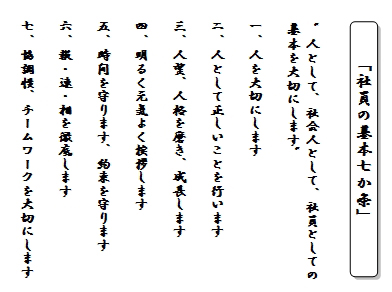 「社員の基本七か条」
"人として、社会人として、社員としての
基本を大切にします"
一、人を大切にします
二、人として正しいことを行います
三、人望、人格を磨き、成長します
四、明るく元気よく挨拶します
五、時間を守ります、約束を守ります
六、報・連・相を徹底します
七、協調性、チームワークを大切にします